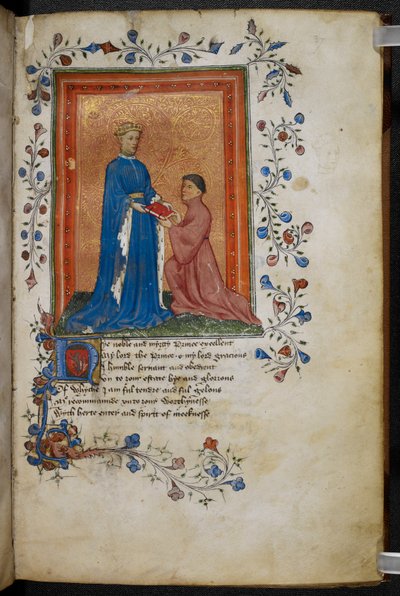 Hye noble and myghty Prince excellent
My lord the Prince o my lord gracious
I humble servant and obedient
Un to your estate hye and glorious
Of whyche I am ful tendre and ful gelous
Me recommaunde unto your worthynesse
Wyth herte enter and spirit of meeknesse